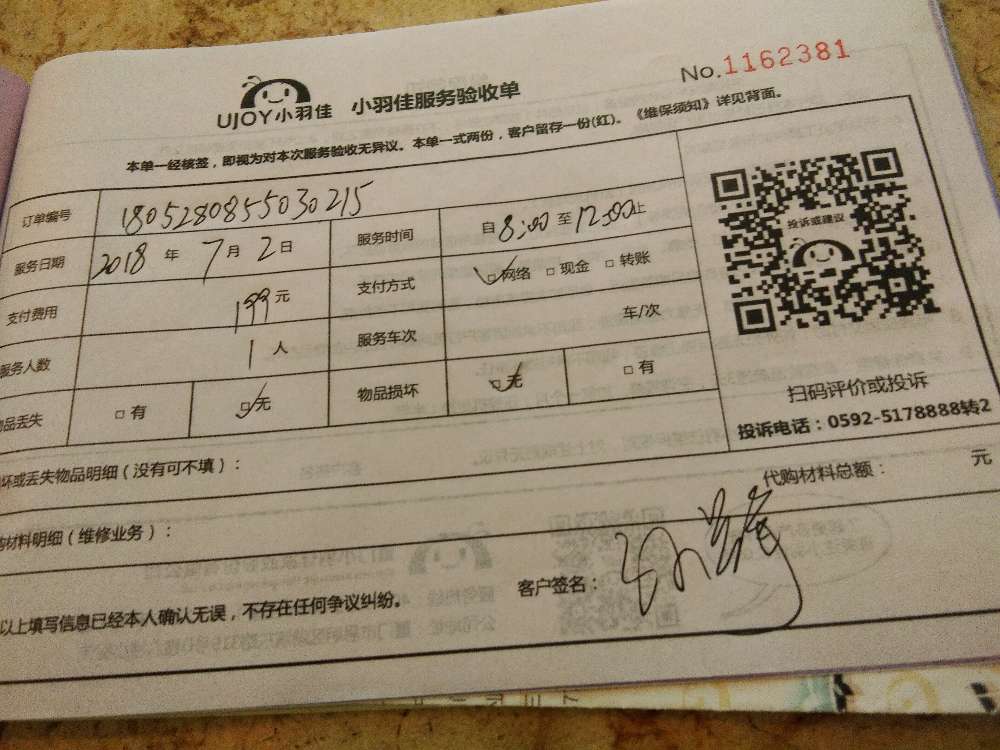 No.1162381
UJOY小羽佳 小羽佳服务验收单
本单一经核签，即视为对本次服务验收无异议。本单一式两份，客户留存一份(红)。《维保须知》详见背面。
订单编号 1805280855030215
服务日期 2018 年 7 月 2 日 服务时间 自 8:00 至 12:00 止
支付费用 199 元 支付方式 □网络 □现金 □转账
服务人数 1 人 服务车次 车/次
品丢失 □有 □无 物品损坏 □无 □有
投诉或建议
扫码评价或投诉
投诉电话：0592-5178888转2
坏或丢失物品明细（没有可不填）：
购材料明细（维修业务）： 代购材料总额： 元
以上填写信息已经本人确认无误，不存在任何争议纠纷。 客户签名：